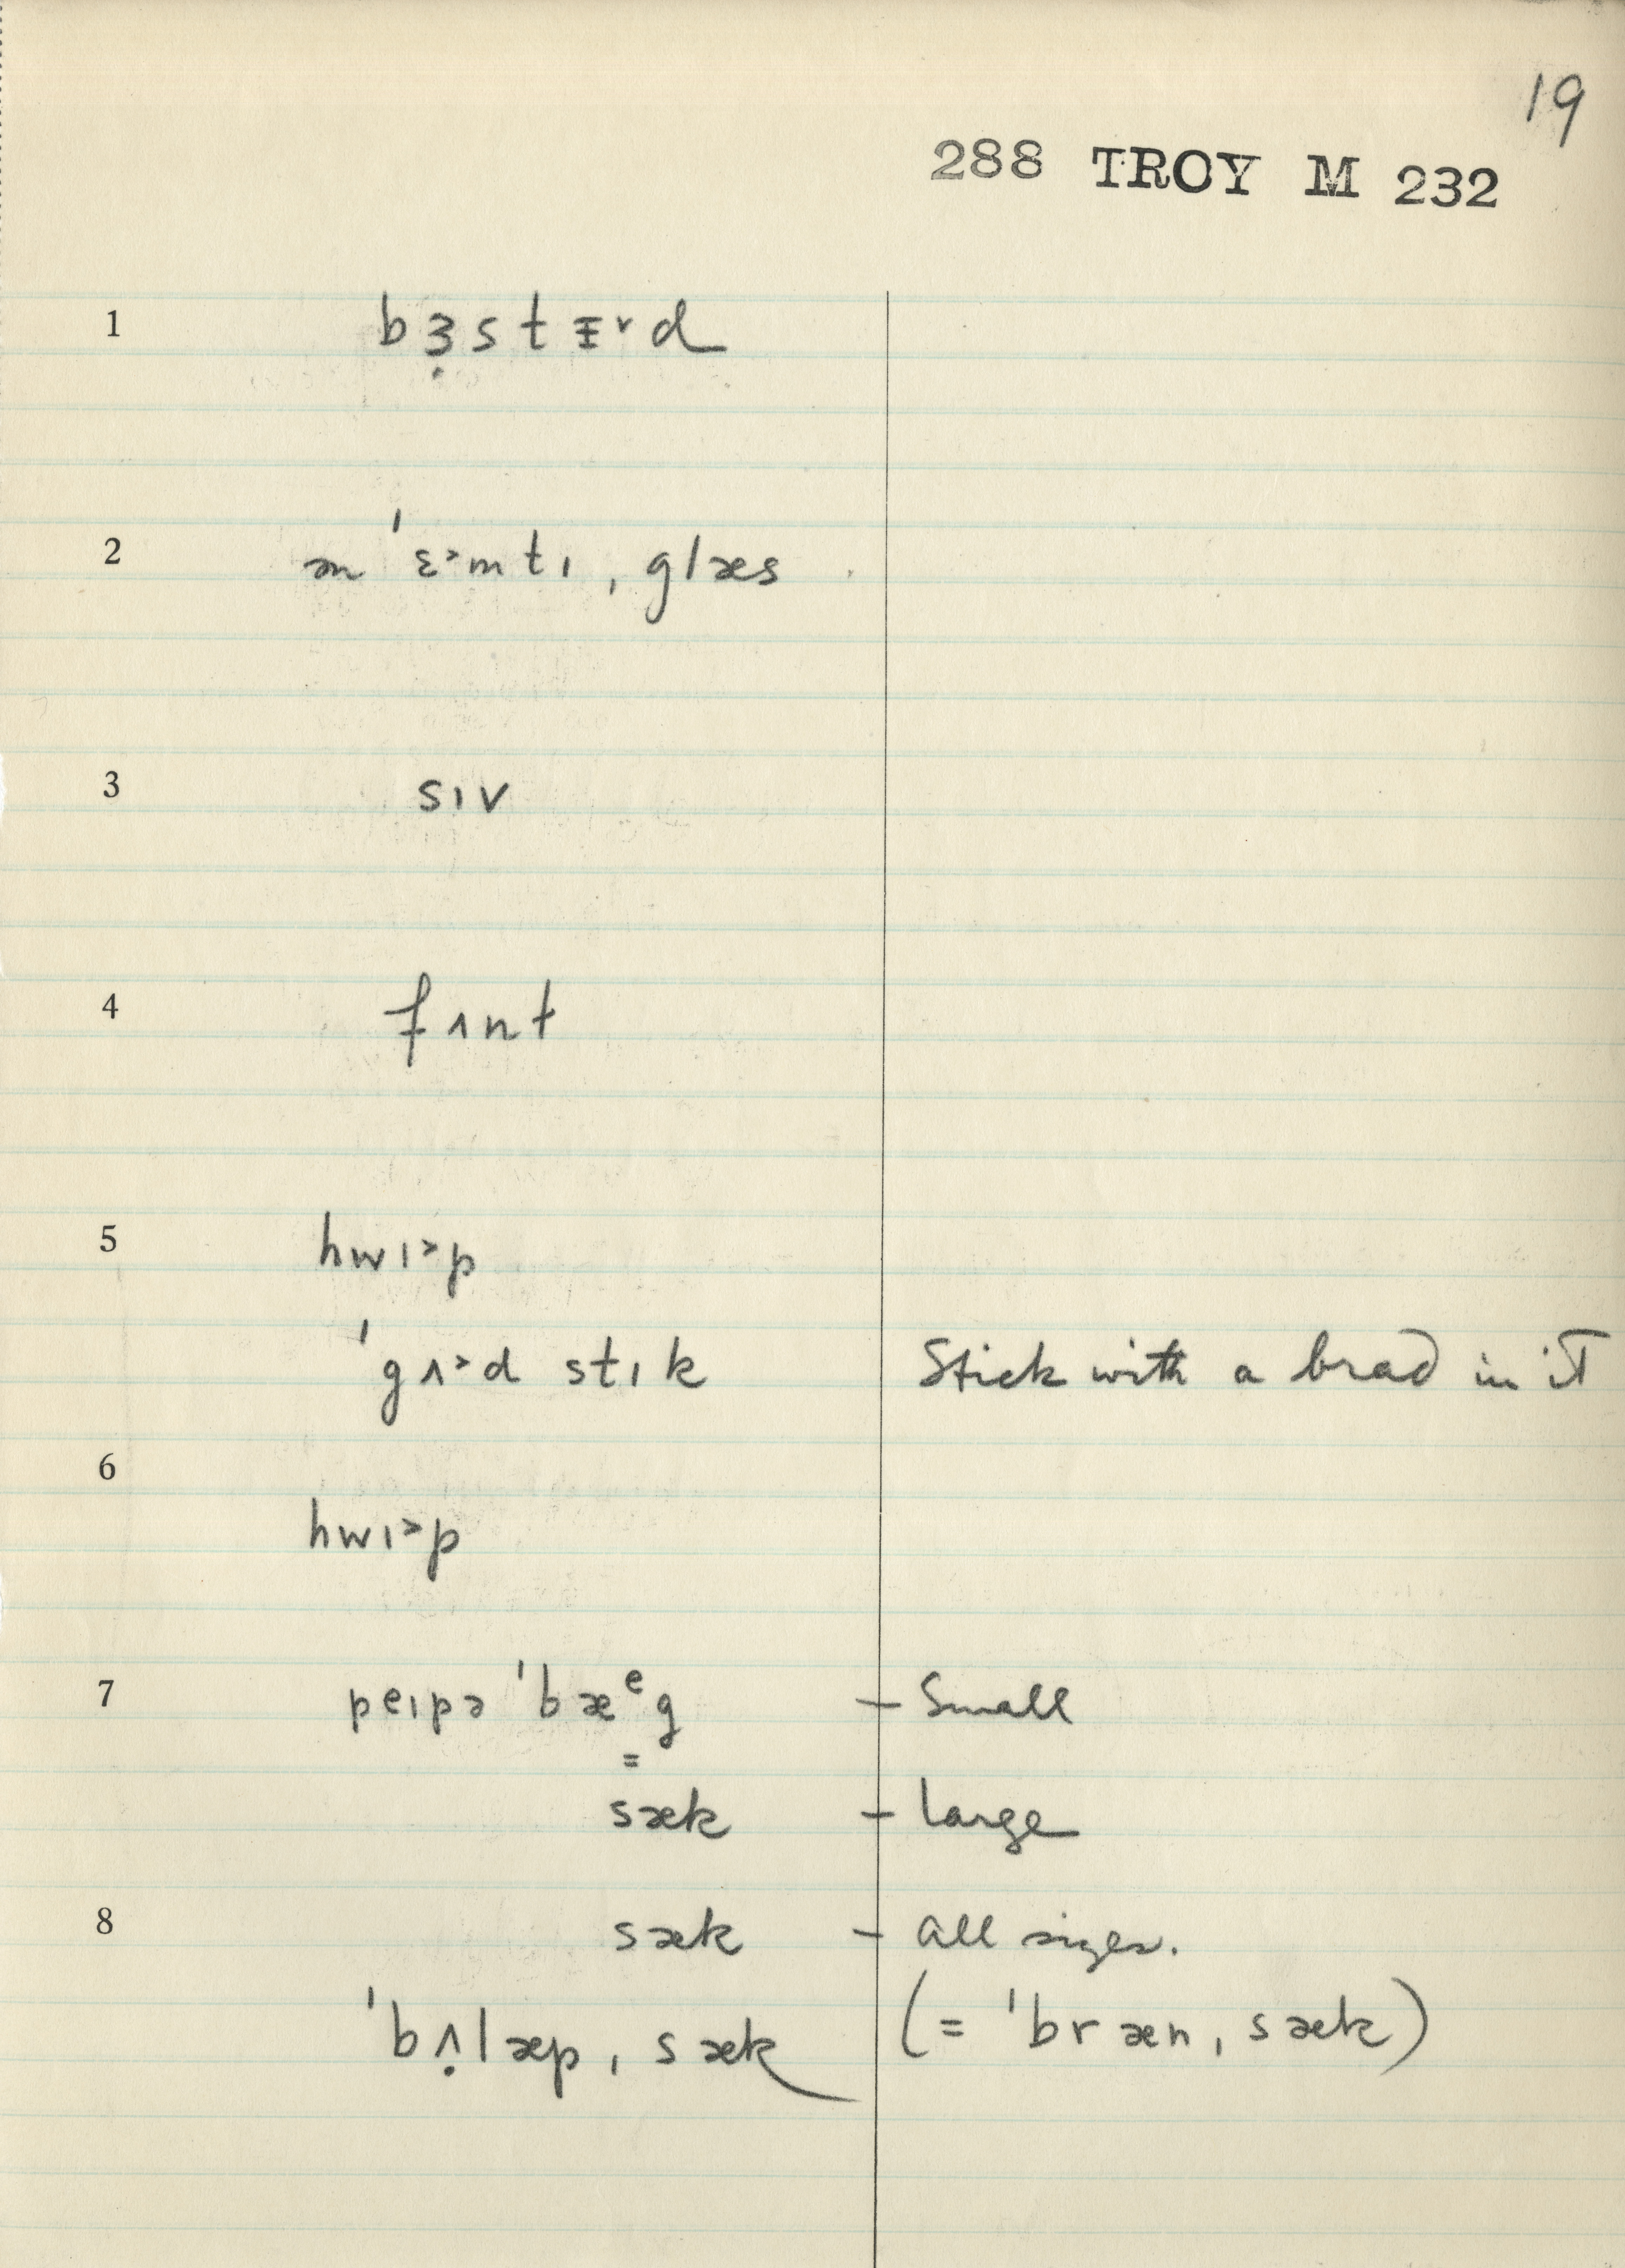 19
288 TROY M 232
1 bɜ̣stɪ̵˅d
2 æn ˈɛ˃mtɪ ˌglæs
3 sɪv
4 fʌnt
5 hwɪ˃p
ˈgʌ˃d stɪk Stick with a brad in it
6
hwɪ˃p
7 peɪpə ˈbæᵉg – Small
= sæk – large
8 sæk – all sizes.
ˈbʌ̣læp ˌsæk (= ˈbræn ˌsæk)